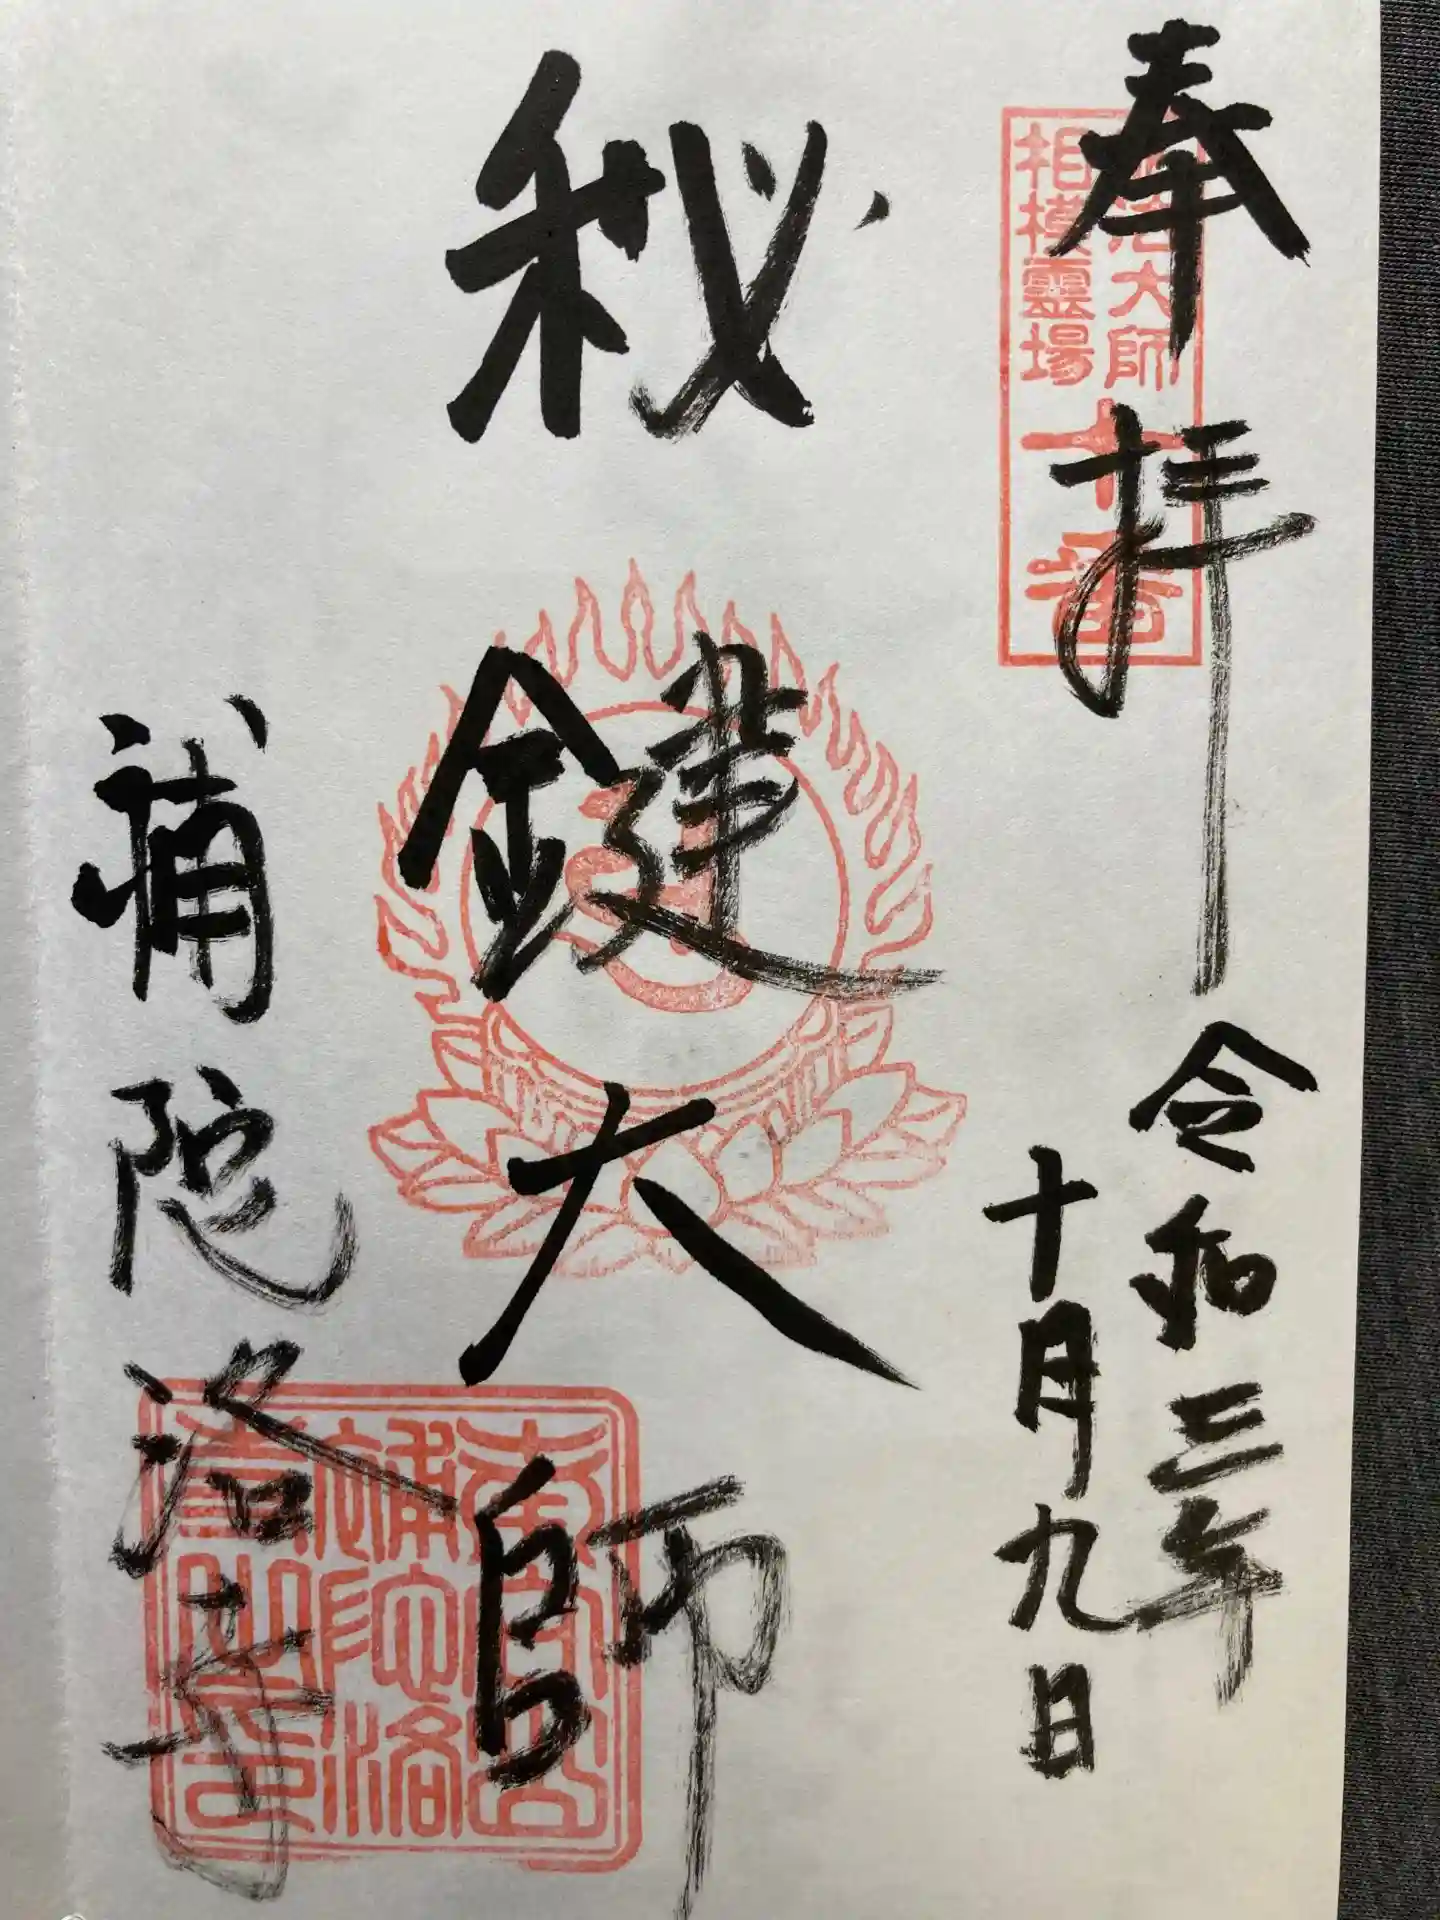 奉拝
令和三年
十月九日
弘法大師
相模霊場
十番
秘鍵大師
補陀洛寺
南向山
補陀洛
寺印